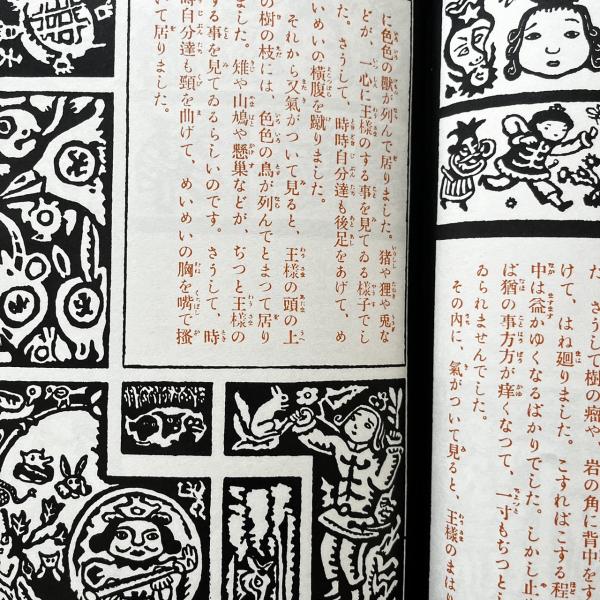 た。さうして樹の瘤や、岩の角に背中をす
けて、はね廻りました。こすればこする程
中は益かゆくなるばかりでした。しかし止
ば猶の事方方が痒くなつて、一寸もぢつと
ゐられませんでした。
その内に、氣がついて見ると、王様のまはり
に色色の獸が列んで居りました。猪や狸や兎な
どが、一心に王様のする事を見てゐる様子でし
た。さうして、時時自分達も後足をあげて、め
いめいの横腹を蹴りました。
それから又氣がついて見ると、王様の頭の上
の樹の枝には、色色の鳥が列んでとまつて居り
ました。雉や山鳩や懸巣などが、ぢつと王様の
する事を見てゐるらしいのです。さうして、時
時自分達も頸を曲げて、めいめいの胸を嘴で搔
いて居りました。